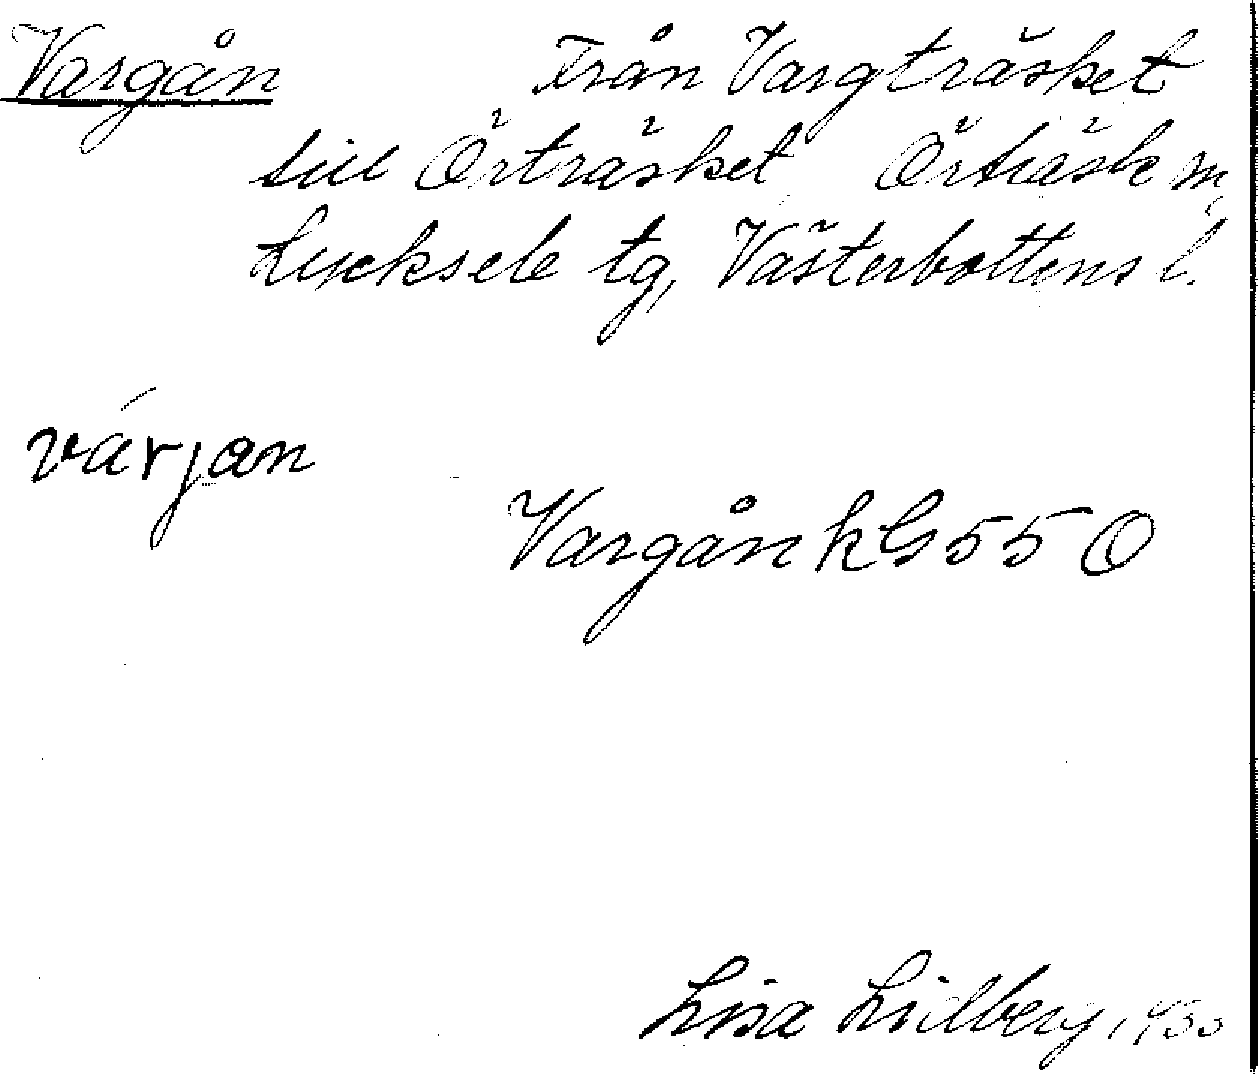 Vargån Från Vargträsket
till Örträsket Örträsk m,
Lycksele tg, Västerbottens l.
várjan
Vargån k G 55 O
Lisa Lidberg, 1930